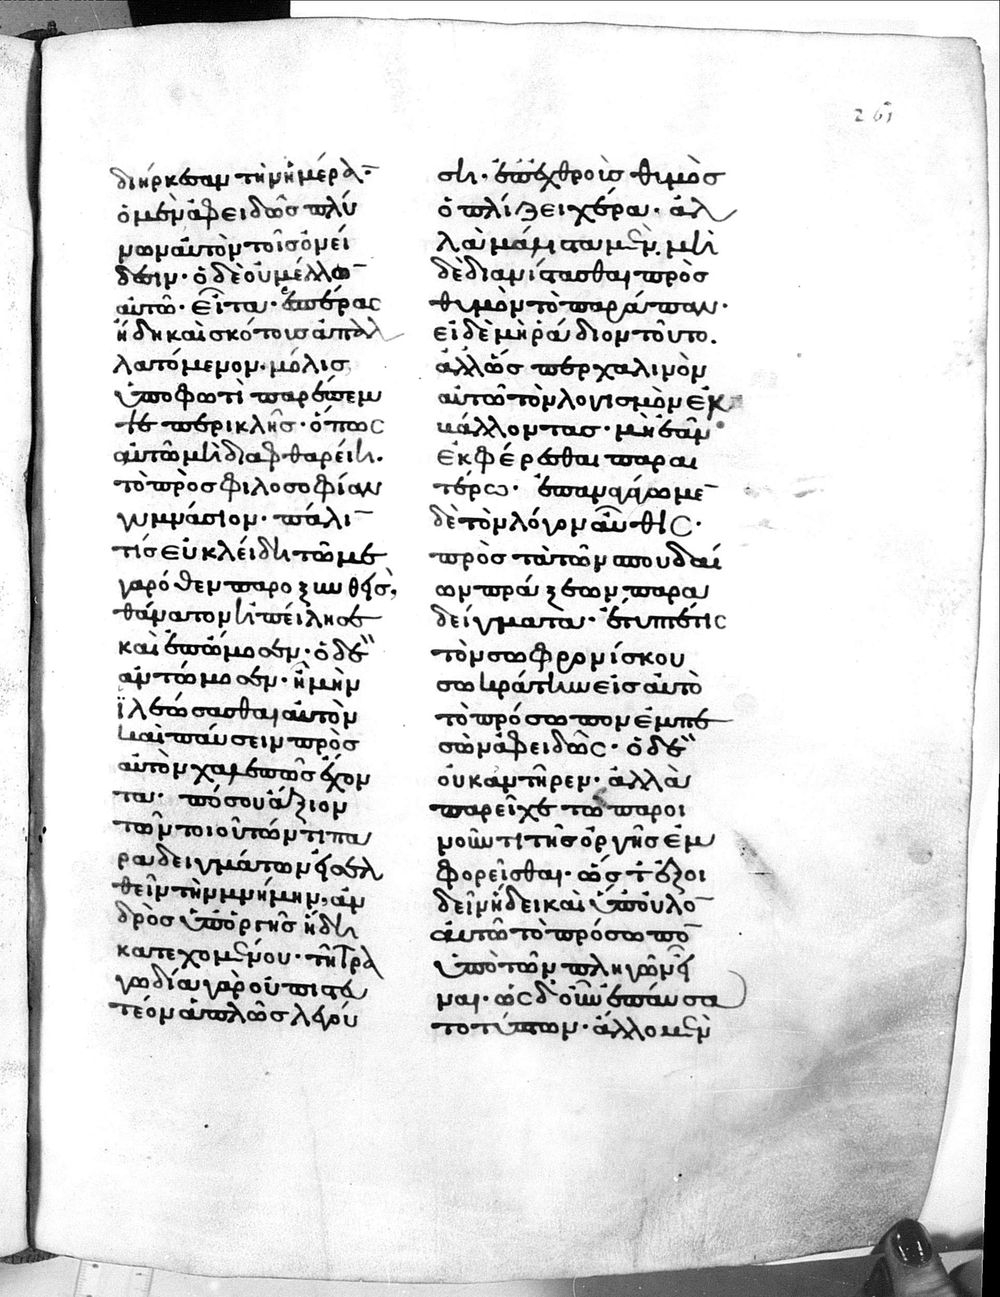 261
διήρκεσαν τὴν ἡμέραν·
ὁ μὲν ἀφειδῶς πλύ
νων αὐτὸν τοῖς ὀνεί
δεσιν· ὁ δὲ οὐ μέλλον
αὐτῶ· εἶτα· ἑσπέρας
ἤδη καὶ σκότους ἀπαλ
λατόμενον· μόλις
ὑπο φωτὶ παρέπεμ
πε περικλῆς· ὅπως
αὐτῶ μὴ διαφθαρείη·
τὸ πρὸς φιλοσοφίαν
γυμνάσιον· πάλιν
τίς εὐκλείδη τῶ με
γαρόθεν παροξυνθεὶς,
θάνατον ἠπείλησε
καὶ ἐπώμοσεν· ὁ δὲ
ἀντώμοσεν· ἦ μὴν
ἱλεώσασθαι αὐτὸν
καὶ παύσειν πρὸς
αὐτὸν χαλεπῶς ἔχον
τα· πόσου ἄξιον
τῶν τοιούτων τι πα
ραδειγμάτων εἰσελ
θεῖν τὴν μνήμην, ἀν
δρὸς ὑπὸ ὀργῆς ἤδη
κατεχομένου· τῆ τρα
γωδία γὰρ οὐ πιστευ
τέον ἁπλῶς λεγού
ση· ἐπ' ἐχθροὺς θυμὸς
ὁπλίζει χέρα· ἀλ
λὰ μάλιστα μὲν, μὴ
δὲ διανίστασθαι πρὸς
θυμὸν τὸ παράπαν·
εἰ δὲ μὴ ῥάδιον τοῦτο.
ἀλλ' ὥσπερ χαλινὸν
αὐτῶ τὸν λογισμὸν ἐμ
βάλλοντας· μὴ ἐᾶν
ἐκφέρεσθαι παραι
τέρω· ἐπαναγάγωμεν
δὲ τὸν λόγον αὖθις·
πρὸς τὰ τῶν σπουδαί
ων πράξεων παρα
δείγματα· ἔτυπτέ τις
τὸν σωφρονίσκου
σωκράτην εἰς αὐτὸ
τὸ πρόσωπον ἐμπε
σὼν ἀφειδῶς· ὁ δὲ
οὐκ ἀντῆρεν· ἀλλὰ
παρεῖχε τῶ παροι
νοῦντι τῆς ὀργῆς ἐμ
φορεῖσθαι· ὥστε ἐξοι
δεῖν ἤδει καὶ ὕπουλον
αὐτῶ τὸ πρόσωπον
ὑπὸ τῶν πληγῶν εἶ
ναι· ὡς δ' οὖν ἐπαύσα
το τύπτων· ἄλλο μὲν